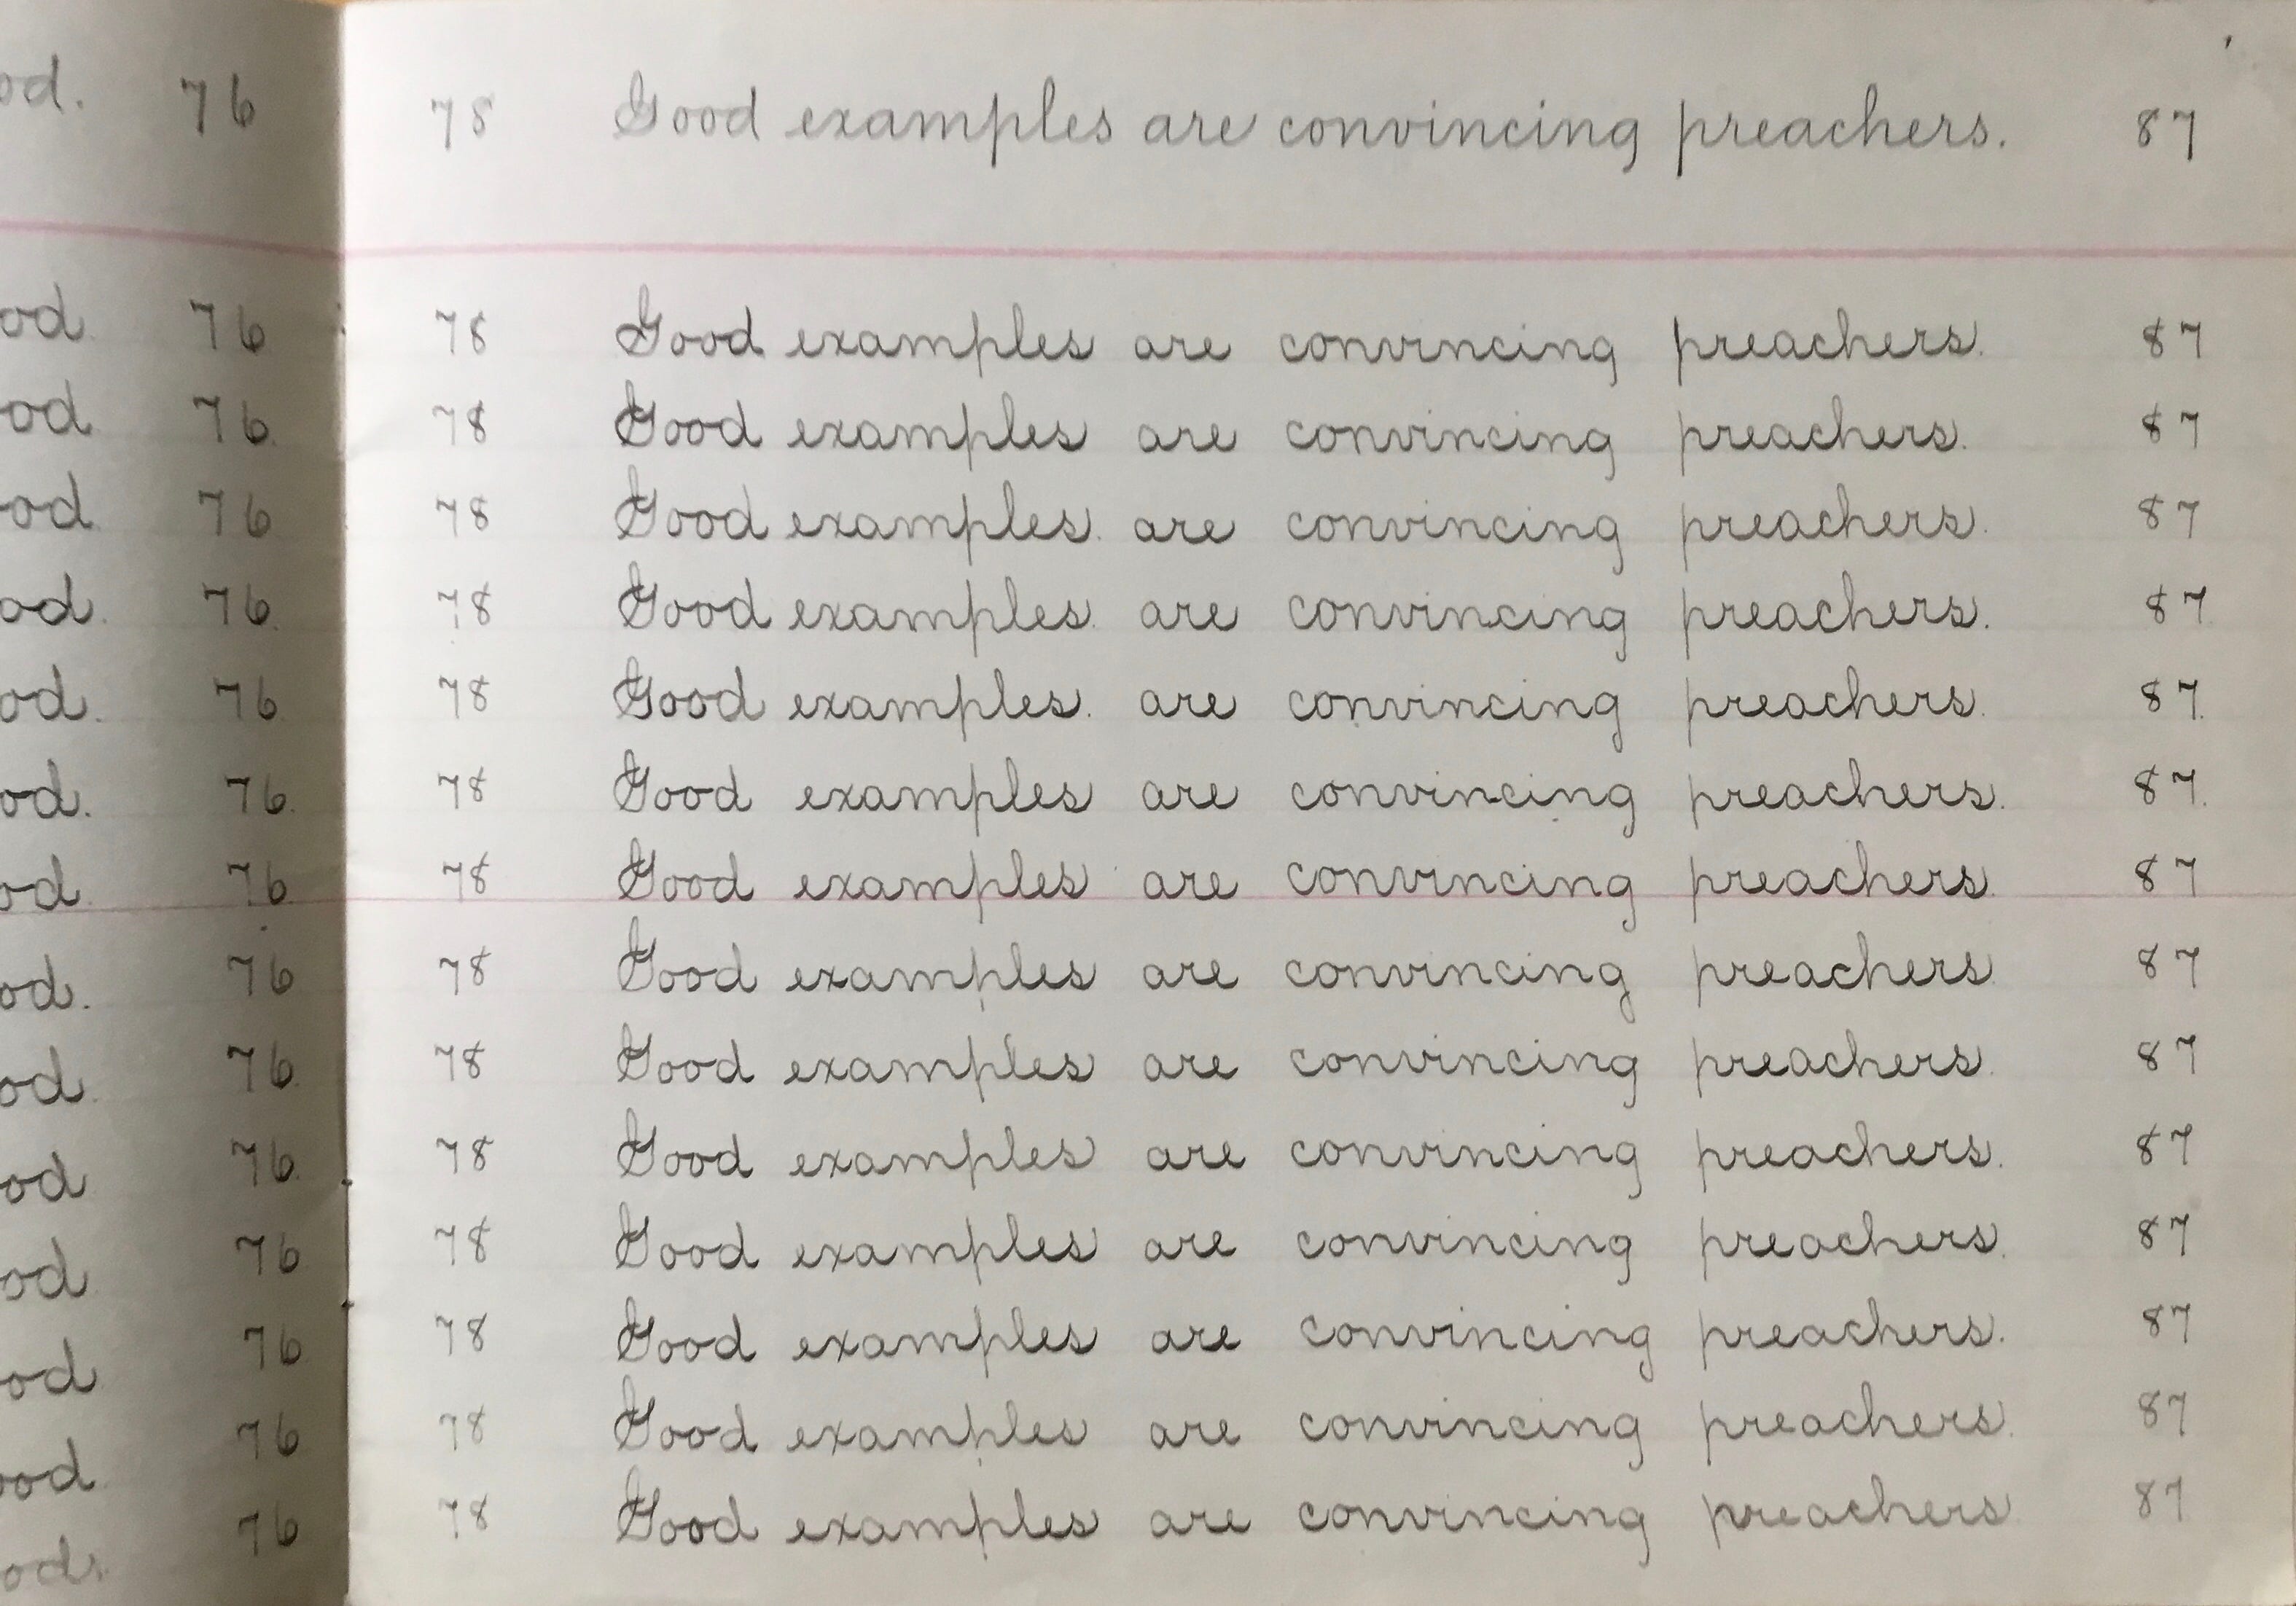 76
76
76
76
76
76
76
76
76
76
76
76
76
76
78 Good examples are convincing preachers. 87
78 Good examples are convincing preachers. 87
78 Good examples are convincing preachers. 87
78 Good examples. are convincing preachers. 87
78 Good examples. are convincing preachers. 87
78 Good examples. are convincing preachers. 87.
78 Good examples are convincing preachers. 87.
78 Good examples are convincing preachers. 87
78 Good examples are convincing preachers 87
78 Good examples are convincing preachers. 87
78 Good examples are convincing preachers. 87
78 Good examples are convincing preachers. 87
78 Good examples are convincing preachers. 87
78 Good examples are convincing preachers. 87
78 Good examples are convincing preachers 87